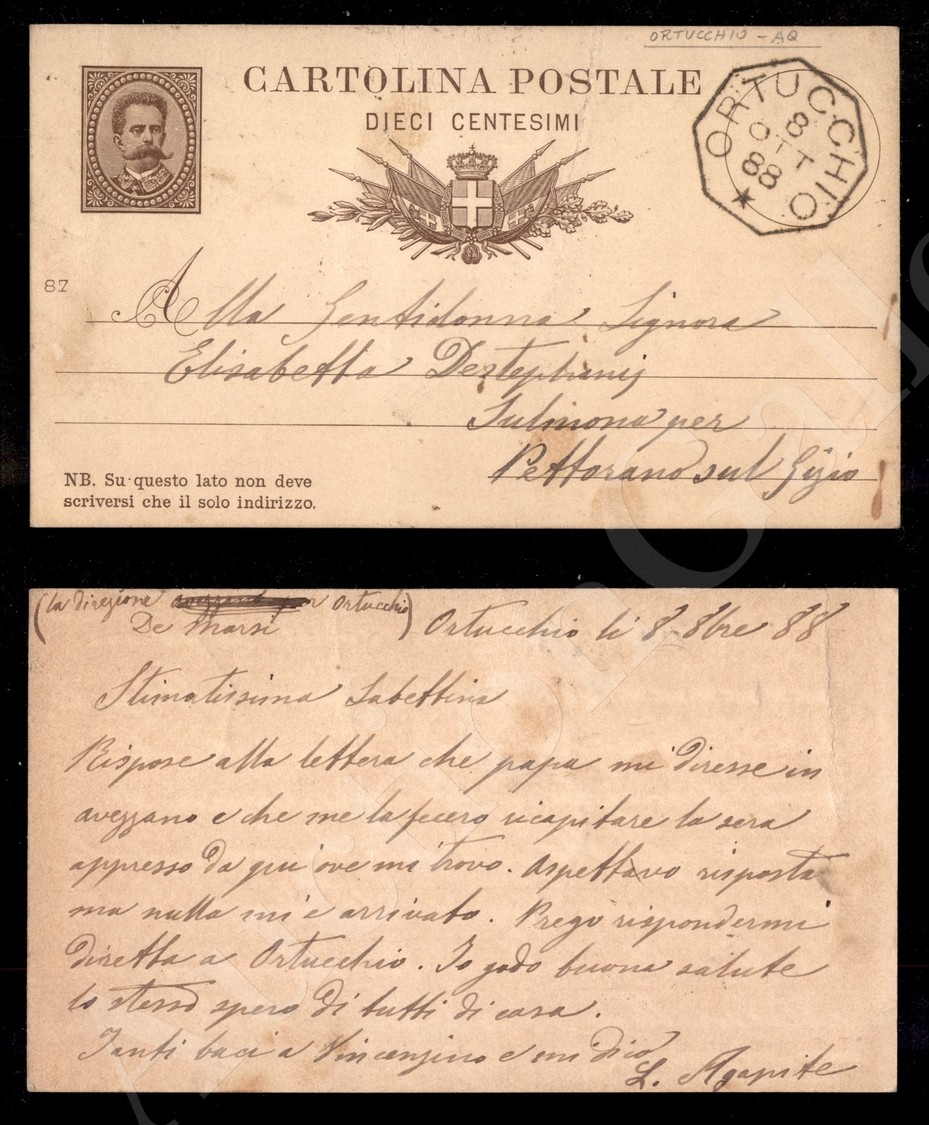 ORTUCCHIO - AQ
CARTOLINA POSTALE
DIECI CENTESIMI
ORTUCCHIO
8
OTT
88
87
Alla Gentidonna Signora
Elisabetta Destephanis
Sulmona per
Pettorano sul Gizio
NB. Su questo lato non deve
scriversi che il solo indirizzo.
(la direzione Ortucchio
De Marsi)
Ortucchio li 8 8bre 88
Stimatissima Sabettina
Rispose alla lettera che papa mi diresse in
avezzano e che me la fecero ricapitare la sera
appresso da qui ove mi trovo. Aspettavo risposta
ma nulla mi e arrivato. Prego rispondermi
diretta a Ortucchio. Io godo buona salute
lo stesso spero di tutti di casa.
Tanti baci a Vincenzino e mi dico
L. Agapite